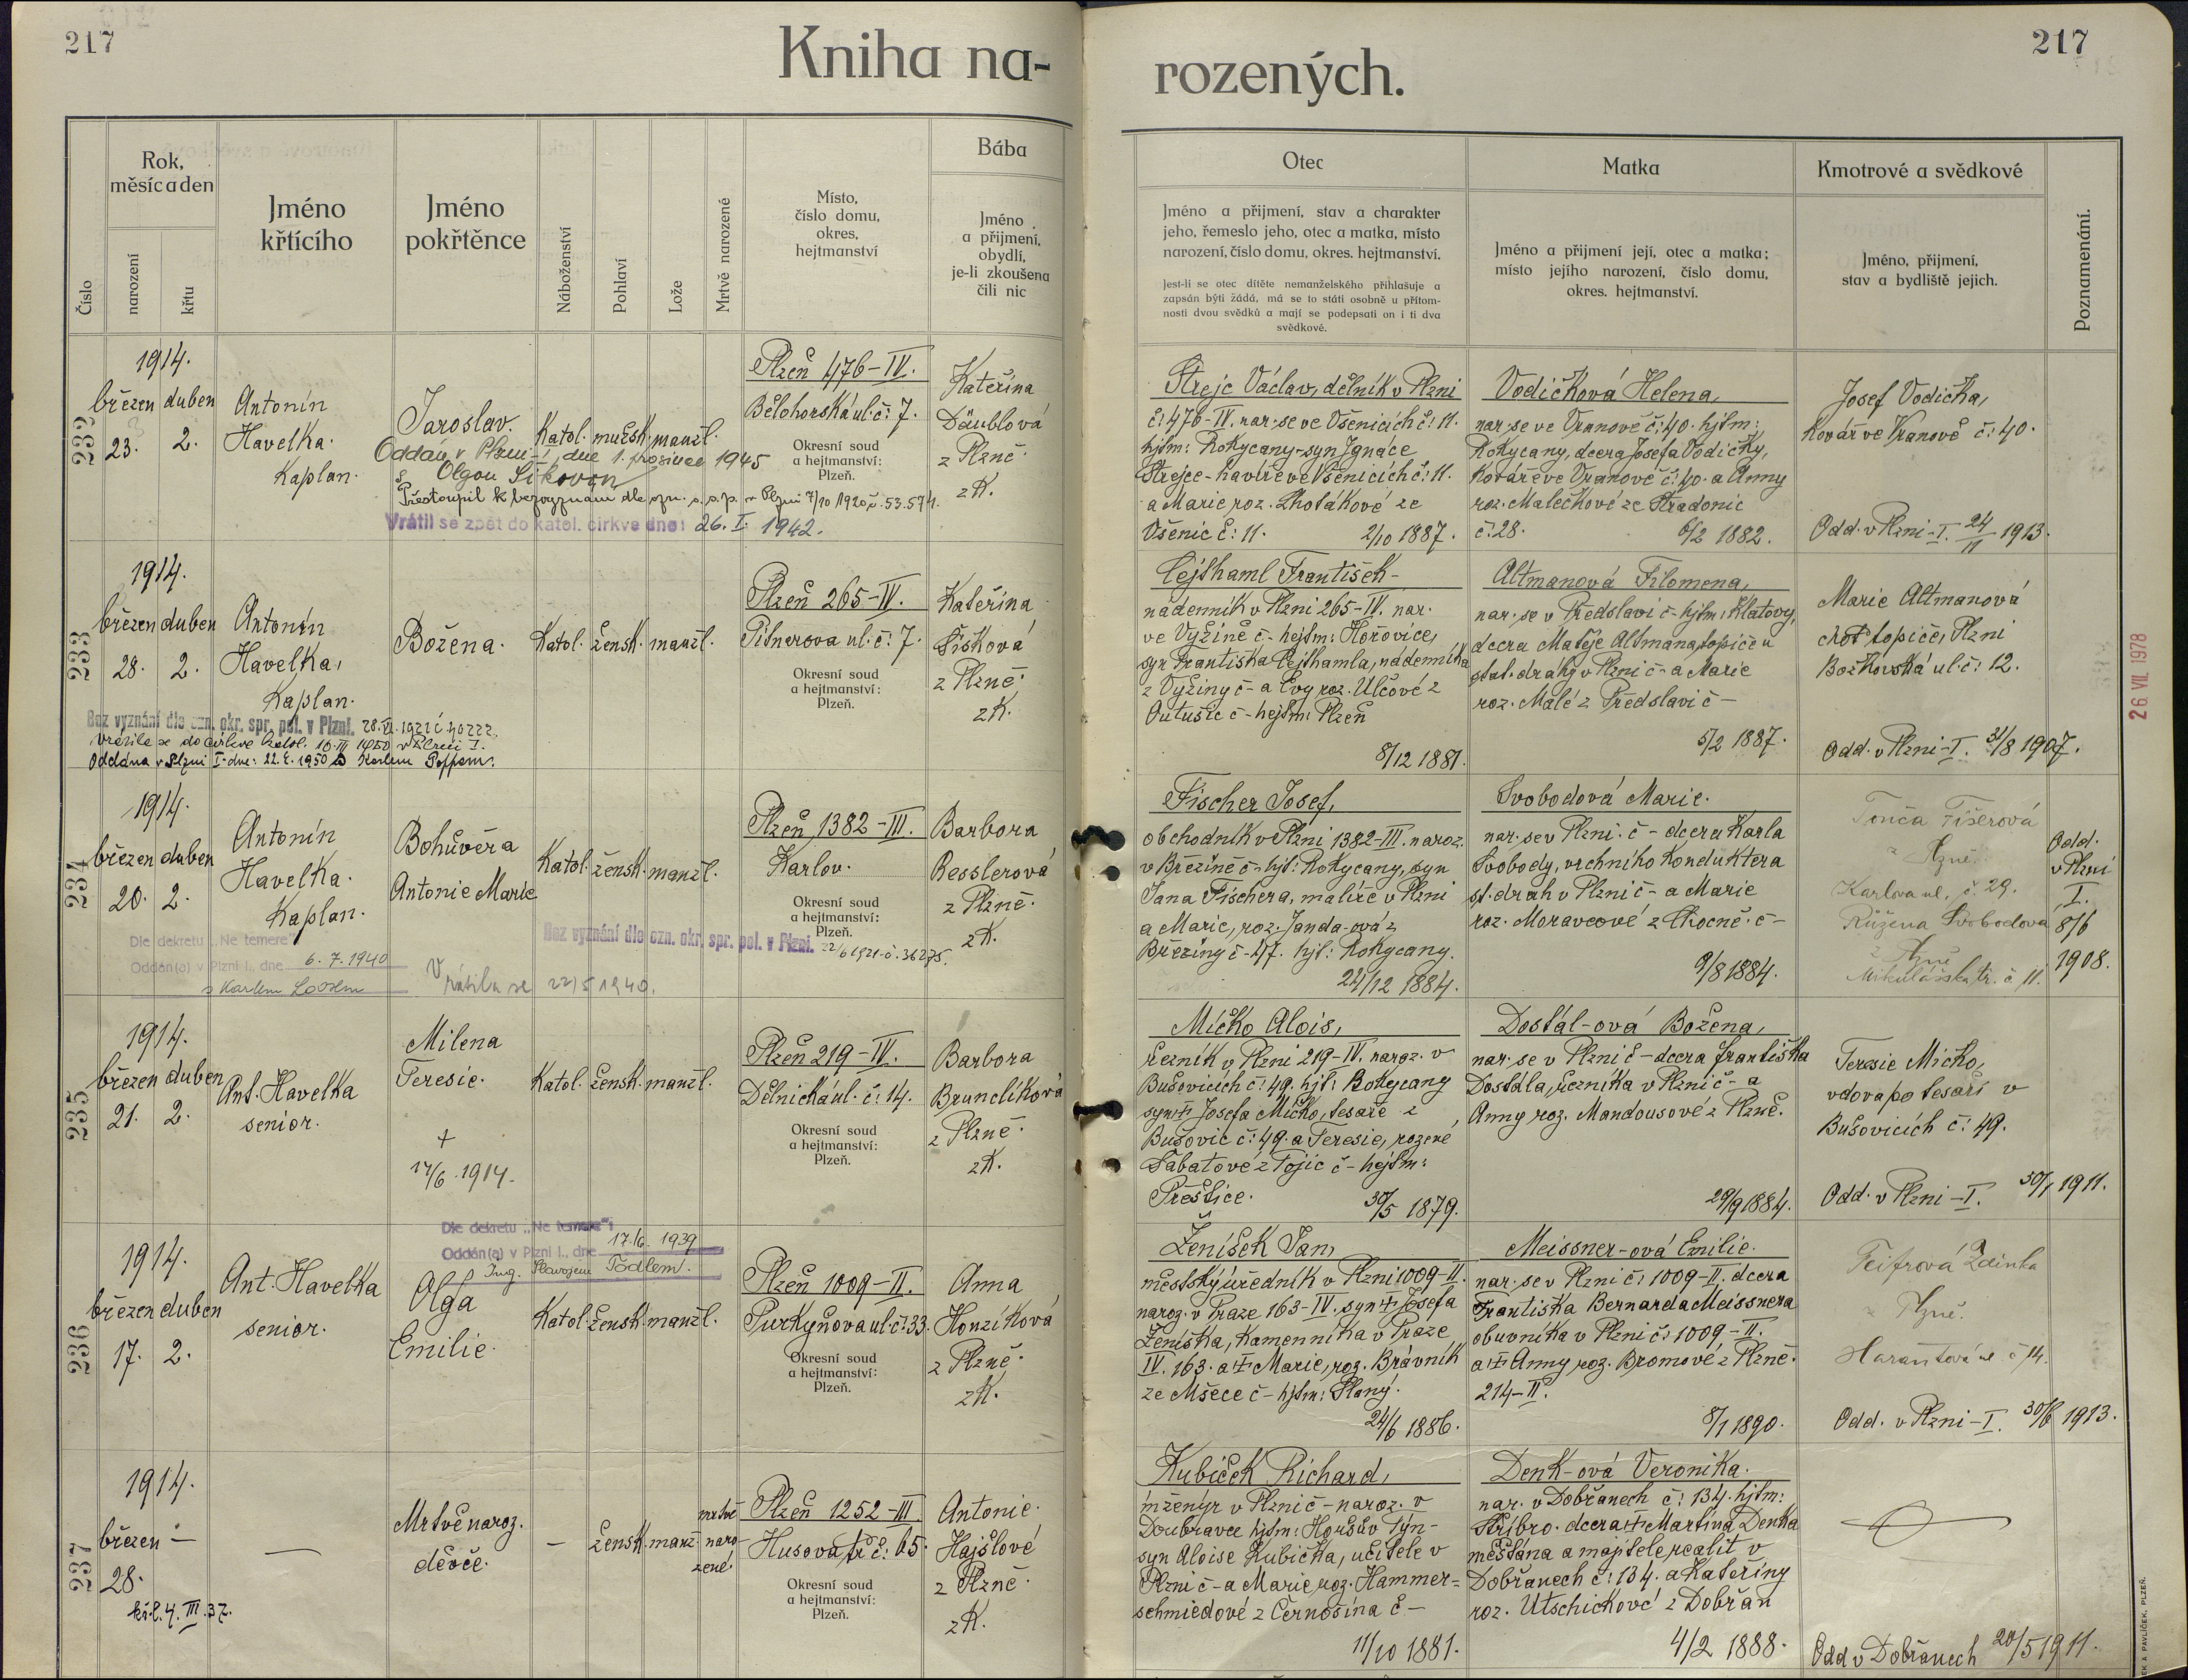 217
Kniha na-
rozených.
217
Číslo
Rok,
měsíc a den
narození
křtu
Jméno
křtícího
Jméno
pokřtěnce
Náboženství
Pohlaví
Lože
Mrtvě narozené
Místo,
číslo domu,
okres,
hejtmanství
Bába
Jméno
a příjmení,
obydlí,
je-li zkoušena
čili nic
Otec
Jméno a přijmení, stav a charakter
jeho, řemeslo jeho, otec a matka, místo
narození, číslo domu, okres. hejtmanství.
Jest-li se otec dítěte nemanželského přihlašuje a
zapsán býti žádá, má se to státi osobně u přítom-
nosti dvou svědků a mají se podepsati on i ti dva
svědkové.
Matka
Jméno a přijmení její, otec a matka;
místo jejího narození, číslo domu,
okres. hejtmanství.
Kmotrové a svědkové
Jméno, přijmení,
stav a bydliště jejich.
Poznamenání.
232
1914.
březen duben
23. 2.
Antonín
Havelka.
Kaplan.
Jaroslav.
Oddán v Plzni-I, dne 1. prosince 1945
s Olgou Síkovou
Přestoupil k bezvyznání dle ozn. o. s. p. v Plzni 7/10 1920 č. 53.574.
Vrátil se zpět do katol. církve dne: 26. I. 1942.
Katol. mužsk. manžl.
Plzeň 476-IV.
Bělohorská ul. č: 7.
Okresní soud
a hejtmanství:
Plzeň.
Kateřina
Däublová
z Plzně.
zK.
Strejc Václav, dělník v Plzni
č: 476-IV. nar. se ve Všenicích č: 11.
hjtm: Rokycany-syn Ignáce
Strejce-havíře ve Všenicích č: 11.
a Marie roz. Lhotákové ze
Všenic č: 11. 2/10 1887.
Vodičková Helena,
nar. se ve Vranově č: 40. hjtm:
Rokycany, dcera Josefa Vodičky,
Kováře ve Vranově č: 40. a Anny
roz. Malečkové ze Stradonic
č: 28. 6/2 1882.
Josef Vodička,
Kovář ve Vranově č: 40.
Odd. v Plzni-I. 24/11 1913.
233
1914.
březen duben
28. 2.
Antonín
Havelka,
Kaplan.
Bez vyznání dle ozn. okr. spr. pol. v Plzni. 28. VI. 1921 č 40222.
Vrátila se do církve katol. 10. III 1950 v Plzni I.
Oddána v Plzni I. dne: 22. 4. 1950 s Karlem Poppem.
Božena.
Katol. žensk. manžl.
Plzeň 265-IV.
Pitnerova ul. č: 7.
Okresní soud
a hejtmanství:
Plzeň.
Kateřina
Šišková
z Plzně.
zK.
Cejthaml František-
nádenník v Plzni 265-IV. nar.
ve Vyžině č- hejtm: Hořovice,
syn Františka Cejthamla, nádenníka
z Vyžiny č- a Evy roz. Ulčové z
Outušic č- hejtm: Plzeň
8/12 1881.
Altmanová Filomena,
nar. se v Předslavi č- hjtm: Klatovy,
dcera Matěje Altmana, topiče u
stat. dráhy v Plzni č- a Marie
roz. Malé z Předslavi č-
5/2 1887.
Marie Altmanová
choť topiče, Plzni
Božkovská ul. č: 12.
Odd. v Plzni-I. 31/8 1907.
26 VII 1978
234
1914.
březen duben
20. 2.
Antonín
Havelka.
Kaplan.
Dle dekretu „Ne temere"
Oddán(a) v Plzni I., dne 6. 7. 1940
s Karlem Loosem
Bohuvěra
Antonie Marie
Vrátila se 22/5 1940.
Katol. žensk. manžl.
Bez vyznání dle ozn. okr. spr. pol. v Plzni. 22/6 1921 č. 36275.
Plzeň 1382-III.
Karlov.
Okresní soud
a hejtmanství:
Plzeň.
Barbora
Besslerová
z Plzně.
zK.
Fischer Josef,
obchodník v Plzni 1382-III. naroz.
v Březině č- hjt: Rokycany, syn
Jana Fischera, malíře v Plzni
a Marie, roz. Janda-ová z
Březiny č- 47. hjt: Rokycany.
24/12 1884.
Svobodová Marie.
nar. se v Plzni. č- dcera Karla
Svobody, vrchního Konduktera
st. drah v Plzni č- a Marie
roz. Moravcové z Chocně. č-
9/8 1884.
Tonča Fišerová
z Plzně.
Karlova ul. č. 29.
Růžena Svobodová
z Plzně
Mikulášská tř. č 11.
Odd.
v Plzni
I.
8/6
1908.
235
1914.
březen duben
21. 2.
Ant. Havelka
senior.
Milena
Teresie.
+
17/6. 1914.
Katol. žensk. manžl.
Plzeň 219-IV.
Dělnická ul. č: 14.
Okresní soud
a hejtmanství:
Plzeň.
Barbora
Brunclíková
z Plzně.
zK.
Mičko Alois,
řezník v Plzni 219-IV. naroz. v
Bušovicích č: 49. hjt: Rokycany
syn + Josefa Mičko, tesaře z
Bušovic č: 49. a Teresie, rozené
Sabatové z Tojic č- hejtm:
Přeštice. 30/5 1879.
Dostál-ová Božena,
nar. se v Plzni č- dcera Františka
Dostála, řezníka v Plzni č- a
Anny roz. Mandousové z Plzně.
29/9 1884.
Teresie Mičko,
vdova po tesaři v
Bušovicích č: 49.
Odd. v Plzni-I. 30/1 1911.
236
1914.
březen duben
17. 2.
Ant. Havelka
senior.
Dle dekretu „Ne temere":
Oddán(a) v Plzni I., dne 17. 6. 1939
Ing. Slavojem Tödlem.
Olga
Emilie.
Katol. žensk. manžl.
Plzeň 1009-II.
Purkyňova ul. č: 33.
Okresní soud
a hejtmanství:
Plzeň.
Anna
Honzíková
z Plzně.
zK.
Ženíšek Jan,
městský úředník v Plzni 1009-II.
naroz. v Praze 163-IV. syn + Josefa
Ženíška, Kamenníka v Praze
IV. 163. a + Marie, roz. Brávník
ze Mšece č- hjtm: Slaný.
24/6 1886.
Meissner-ová Emilie.
nar. se v Plzni č: 1009-II. dcera
Františka Bernarda Meissnera
obuvníka v Plzni č: 1009-II.
a + Anny roz. Bromové z Plzně.
214-II.
8/1 1890.
Feifrová Zdinka
z Plzně.
Harantova ul. č 14.
Odd. v Plzni-I. 30/6 1913.
237
1914.
březen —
28.
kř.l. 4. III. 37.
—
Mrtvě naroz.
děvče.
— žensk. manž.
mrtvě
naro
zené.
Plzeň 1252-III.
Husova tř č: 65.
Okresní soud
a hejtmanství:
Plzeň.
Antonie.
Hajšlové
z Plzně.
zK.
Kubíček Richard,
inženýr v Plzni č- naroz. v
Doubravce hjtm: Horšův Týn-
syn Aloise Kubíčka, učitele v
Plzni č- a Marie roz. Hammer=
schmiedové z Černošína č-
11/10 1881.
Denk-ová Veronika.
nar. v Dobřanech č: 134. hjtm:
Stříbro. dcera + Martina Denka
měšťana a majitele realit v
Dobřanech č: 134. a Kateřiny
roz. Utschickové z Dobřan
4/2 1888.
Odd v Dobřanech 20/5 1911.
EK A PAVLÍČEK, PLZEŇ.